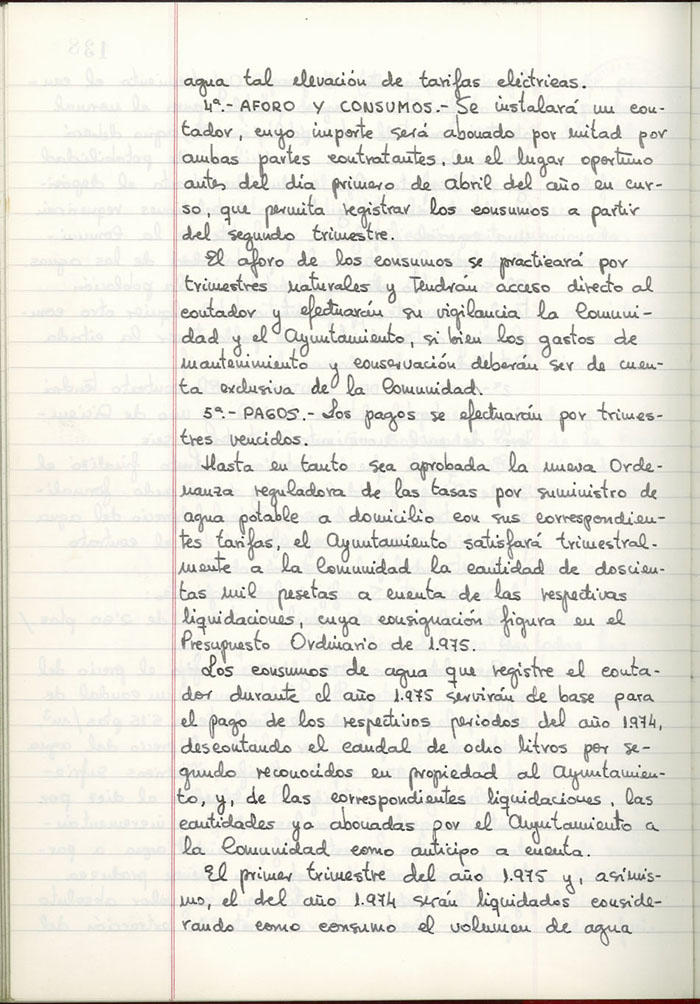 agua tal elevación de tarifas eléctricas.
4ª.- AFORO Y CONSUMOS.- Se instalará un con-
tador, cuyo importe será abonado por mitad por
ambas partes contratantes, en el lugar oportuno
antes del día primero de abril del año en cur-
so, que permita registrar los consumos a partir
del segundo trimestre.
El aforo de los consumos se practicará por
trimestres naturales y tendrán acceso directo al
contador y efectuarán su vigilancia la Comuni-
dad y el Ayuntamiento, si bien los gastos de
mantenimiento y conservación deberán ser de cuen-
ta exclusiva de la Comunidad.
5ª.- PAGOS.- Los pagos se efectuarán por trimes-
tres vencidos.
Hasta en tanto sea aprobada la nueva Orde-
nanza reguladora de las tasas por suministro de
agua potable a domicilio con sus correspondien-
tes tarifas, el Ayuntamiento satisfará trimestral-
mente a la Comunidad la cantidad de doscien-
tas mil pesetas a cuenta de las respectivas
liquidaciones, cuya consignación figura en el
Presupuesto Ordinario de 1.975.
Los consumos de agua que registre el conta-
dor durante el año 1.975 servirán de base para
el pago de los respectivos periodos del año 1974,
descontando el caudal de ocho litros por se-
gundo reconocidos en propiedad al Ayuntamien-
to, y, de las correspondientes liquidaciones, las
cantidades ya abonadas por el Ayuntamiento a
la Comunidad como anticipo a cuenta.
El primer trimestre del año 1.975 y, asimis-
mo, el del año 1.974 serán liquidados conside-
rando como consumo el volumen de agua